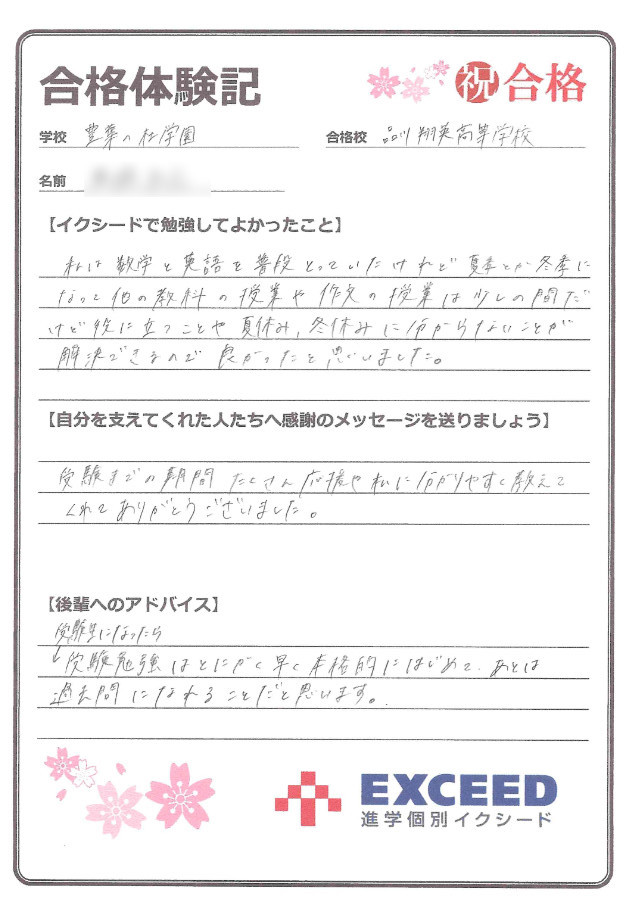 合格体験記
祝 合格
学校 豊葉の杜学園
合格校 品川翔英高等学校
名前
【イクシードで勉強してよかったこと】
私は数学と英語を普段とっていたけれど夏季とか冬季に
なって他の教科の授業や作文の授業は少しの間だ
けど役に立つことや夏休み,冬休みに分からないことが
解決できるので良かったと思いました。
【自分を支えてくれた人たちへ感謝のメッセージを送りましょう】
受験までの期間たくさん応援や私に分かりやすく教えて
くれてありがとうございました。
【後輩へのアドバイス】
受験生になったら
受験勉強はとにかく早く本格的にはじめて、あとは
過去問になれることだと思います。
EXCEED
進学個別イクシード